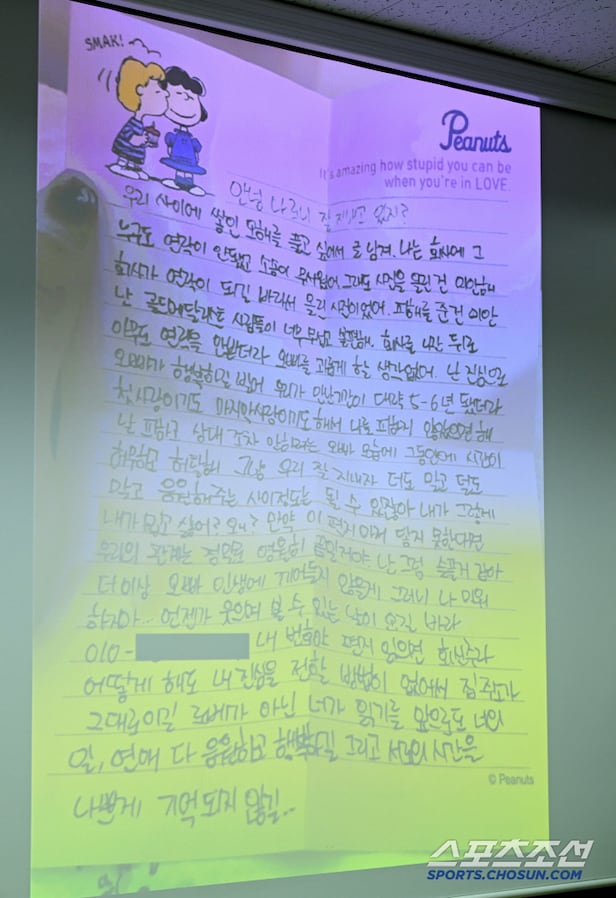 SMAK!
Peanuts
It's amazing how stupid you can be
when you're in LOVE.
안녕 나 잘 지내고 있지?
우리 사이에 쌓인 오해를 풀고 싶어서 글 남겨. 나는 회사에 그
누구도 연락이 안됐고 소송이 무서웠어 그래도 사진을 올린건 미안해
회사가 연락이 되길 바라서 올린 사진이었어. 피해를 준건 미안
난 골드메달리스트 사람들이 너무 무섭고 불편해. 회사를 나간 뒤로
아무도 연락을 안받더라 오빠를 괴롭게 할 생각 없어. 난 진심으로
오빠가 행복하길 빌어 우리가 만난기간이 대략 5-6년 됐더라
첫사랑이기도 마지막사랑이기도해서 나를 피하지 않았으면 해
날 피하고 상대 조차 안하려는 오빠 모습에 그동안에 시간이
허무하고 허탈해 그냥 우리 잘 지내자 더도 말고 덜도
말고 응원해주는 사이정도는 될 수 있잖아 내가 그렇게
내가 밉고 싫어? 왜? 만약 이 편지마저 닿지 못한다면
우리의 관계는 정말로 영원히 끝일거야 난 그럼 슬플거 같아
더 이상 오빠 인생에 끼어들지 않을게 그러니 나 미워
하지마.. 언젠가 웃으며 볼 수 있는 날이 오길 바라
010- 내 번호야 편지 읽으면 회신주라
어떻게 해도 내 진심을 전할 방법이 없어서 집 주소가
그대로이길 로베가 아닌 너가 읽기를 앞으로도 너의
일, 연애 다 응원하고 행복하길 그리고 서로의 시간을
나쁘게 기억되지 않길..
© Peanuts
스포츠조선
SPORTS.CHOSUN.COM